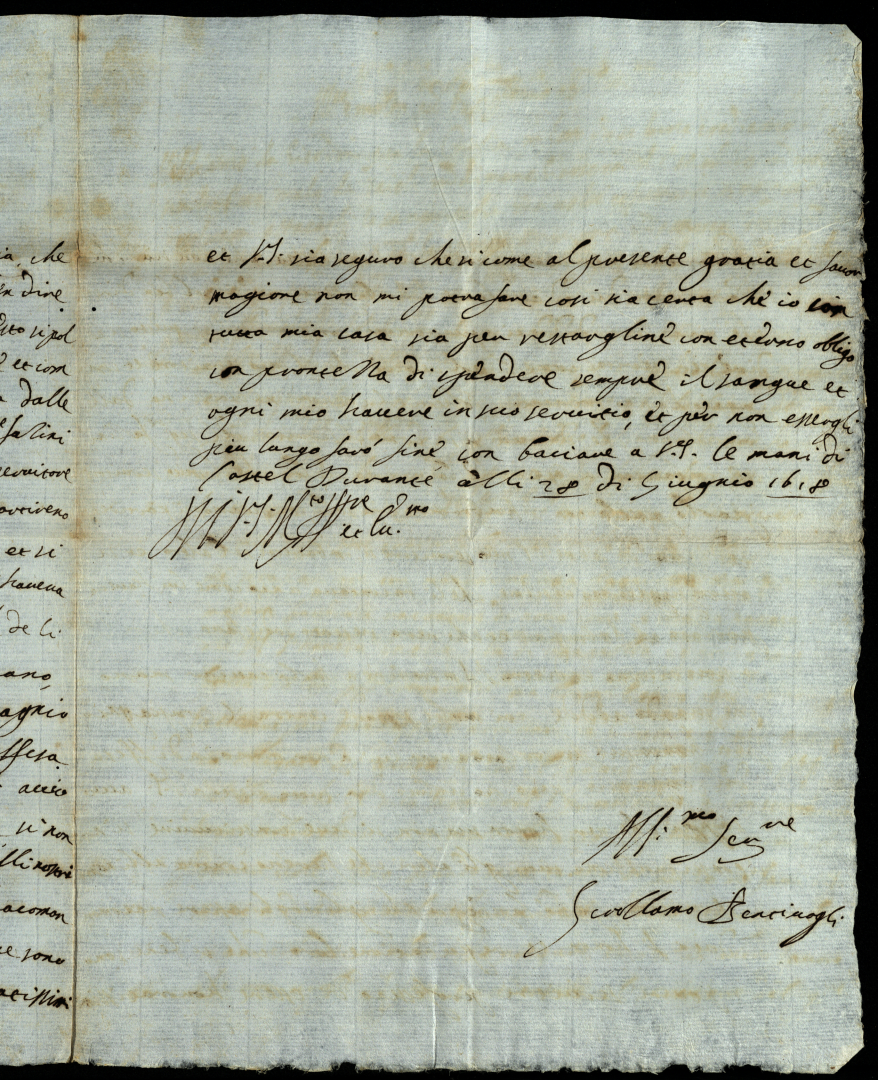 ia, che
en dire
sto si pol
e et com
a dalle
salini
servitore
et si
haveva
de li
ano,
agnio
ffesa
acciò
si non
lli nostri
acoman
e sono
atissimi
et V.S. sia seguro che si come al presente gratia et favor
magiore non mi potra fare cosi sia certa che io con
tutta mia casa sia per restarglinè con etèrno obligo
con prontezza di spèndere semprè il sangue et
ogni mio havere in suo servitio, èt pèr non essergli
piu lungo farò finè con baciare a V.S. le mani di
Castel Durantè àlli 28 di Giugnio 1618
Di V.S. M.to Ill.re
Aff.mo Ser.re
Girollamo Bentivogli